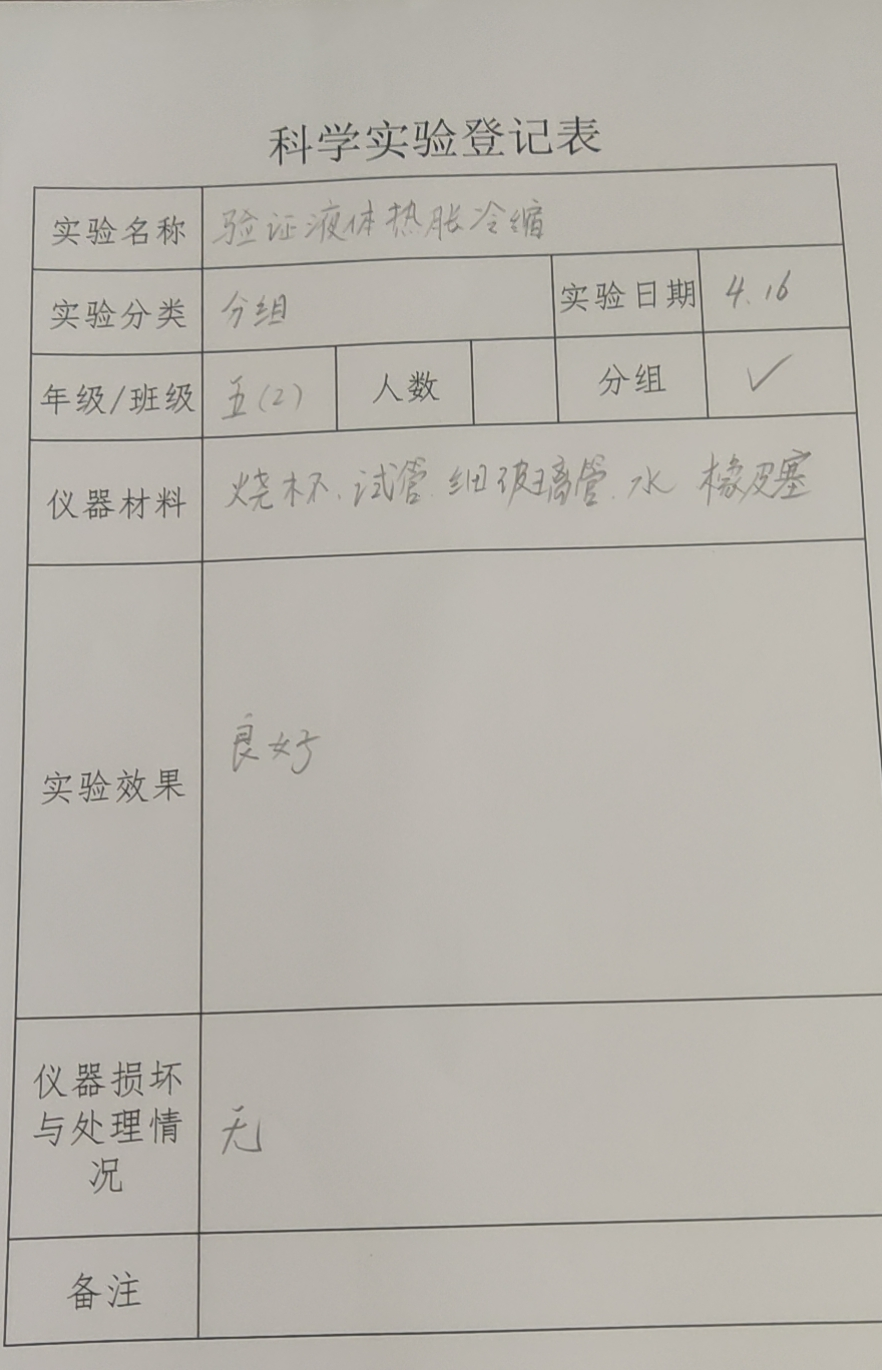 科学实验登记表
实验名称 验证液体热胀冷缩
实验分类 分组 实验日期 4.16
年级/班级 五(2) 人数 分组 ✓
仪器材料 烧杯、试管、细玻璃管、水 橡皮塞
实验效果 良好
仪器损坏
与处理情 无
况
备注